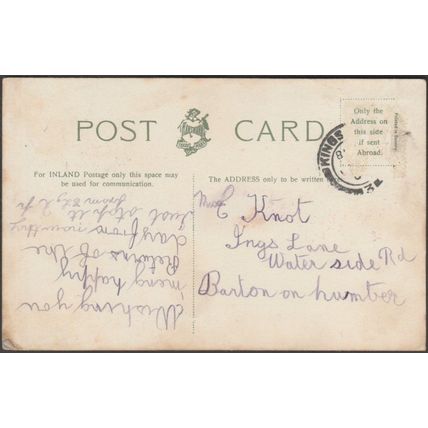 POST CARD
For INLAND Postage only this space may
be used for communication.
The ADDRESS only to be written
Only the
Address on
this side
if sent
Abroad.
KINGS
Wishing you
meny happy
Returns of the
day from
Just
from
E Knot
Ings Lane
Water side Rd
Barton on humber